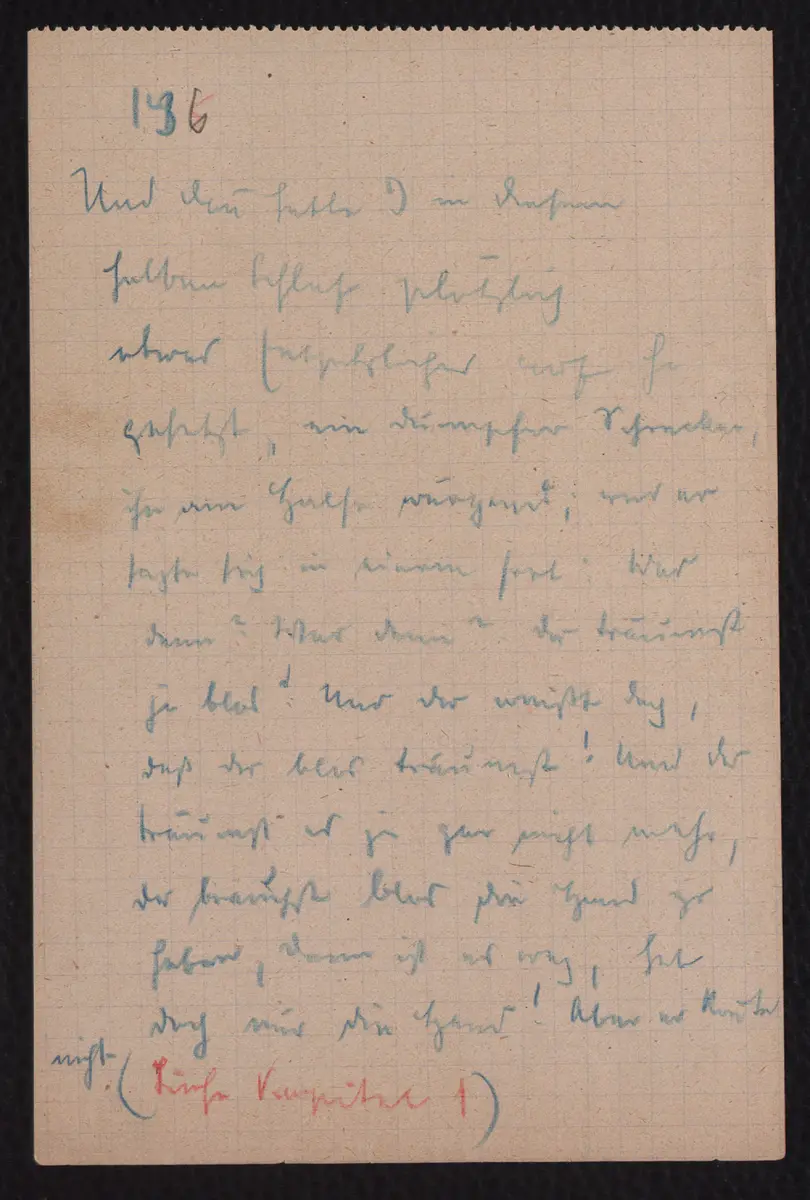 136
Und dann hatte I in diesem
halben Schlaf plötzlich
etwas Entsetzliches auf
gesetzt, ein dumpfer Schrecken,
ihn am Halse würgend; und er
sagte sich in einem fort: Was
denn? Was denn? du träumst
ja blos! Und du weißt doch,
daß du blos träumst! Und du
träumst es ja gar nicht mehr,
du brauchst blos die Hand zu
heben, dann ist es weg, heb
doch nur die Hand! Aber er konnte
nicht.
(Siehe Kapitel 1)